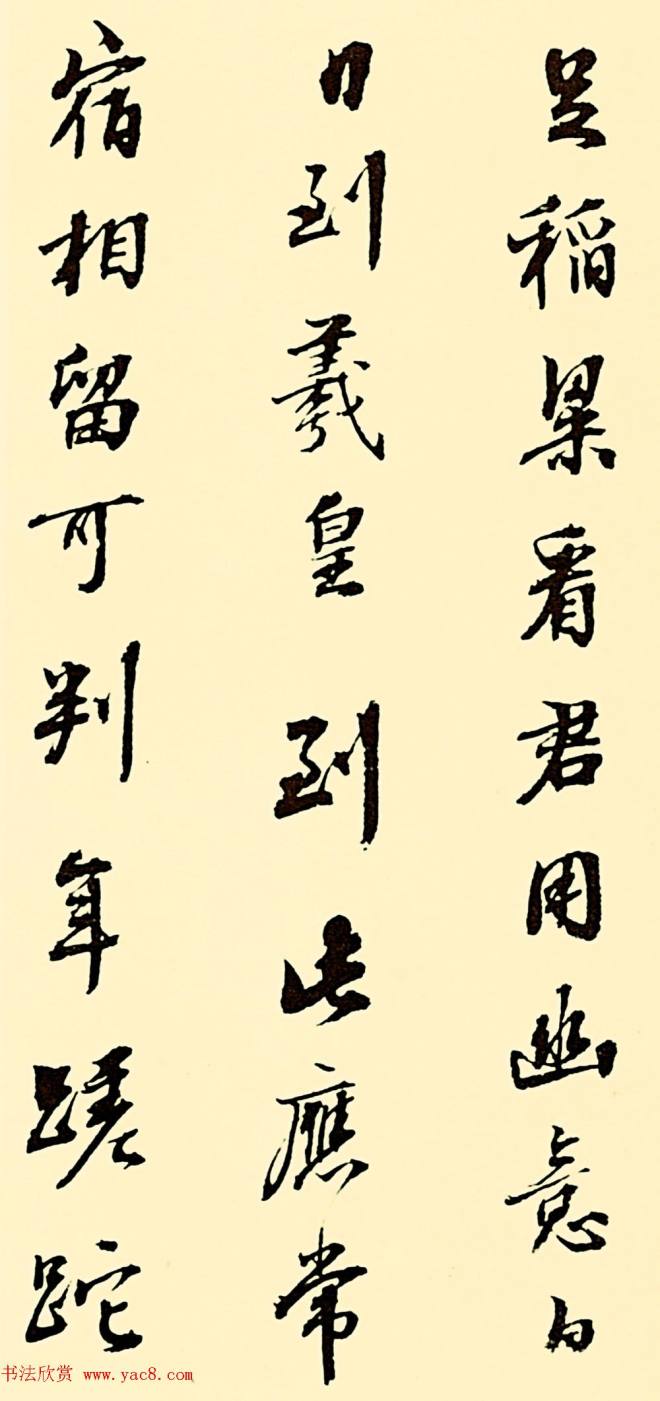 足稻梁看君用幽意白
日到羲皇 到此應常
宿相留可判年蹉跎
书法欣赏 www.yac8.com